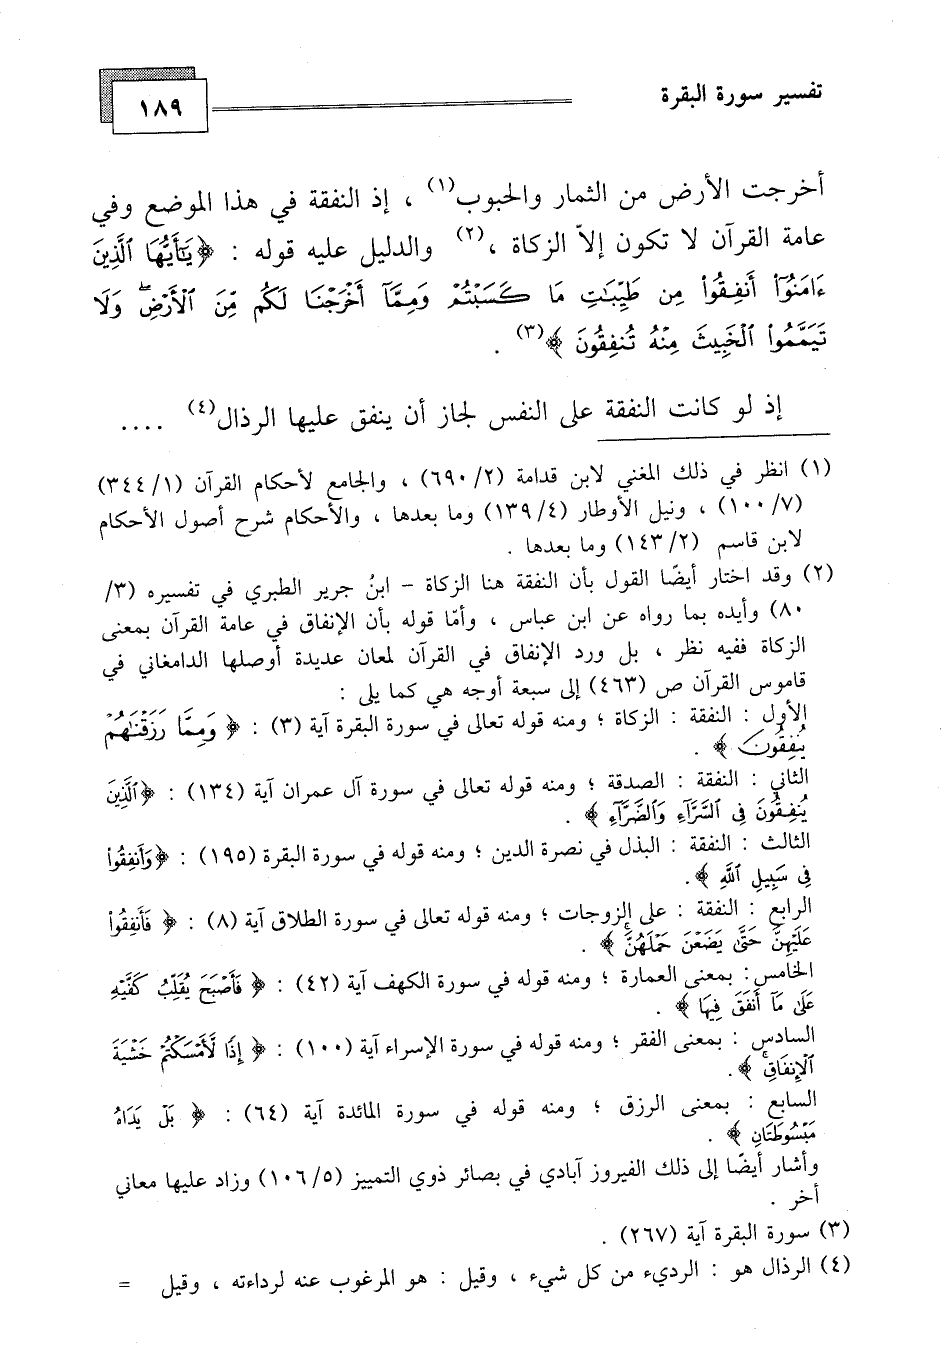 تفسير سورة البقرة
١٨٩
أخرجت الأرض من الثمار والحبوب(١) ، إذ النفقة في هذا الموضع وفي
عامة القرآن لا تكون إلاّ الزكاة ،(٢) والدليل عليه قوله : ﴿ يَٰٓأَيُّهَا ٱلَّذِينَ
ءَامَنُوٓا۟ أَنفِقُوا۟ مِن طَيِّبَٰتِ مَا كَسَبْتُمْ وَمِمَّآ أَخْرَجْنَا لَكُم مِّنَ ٱلْأَرْضِۖ وَلَا
تَيَمَّمُوا۟ ٱلْخَبِيثَ مِنْهُ تُنفِقُونَ ﴾(٣) .
إذ لو كانت النفقة على النفس لجاز أن ينفق عليها الرذال(٤) ....
(١) انظر في ذلك المغني لابن قدامة (٢/ ٦٩٠) ، والجامع لأحكام القرآن (١/ ٣٤٤)
(٧/ ١٠٠) ، ونيل الأوطار (٤/ ١٣٩) وما بعدها ، والأحكام شرح أصول الأحكام
لابن قاسم (٢/ ١٤٣) وما بعدها .
(٢) وقد اختار أيضًا القول بأن النفقة هنا الزكاة - ابنُ جرير الطبري في تفسيره (٣/
٨٠) وأيده بما رواه عن ابن عباس ، وأمّا قوله بأن الإنفاق في عامة القرآن بمعنى
الزكاة ففيه نظر ، بل ورد الإنفاق في القرآن لمعان عديدة أوصلها الدامغاني في
قاموس القرآن ص (٤٦٣) إلى سبعة أوجه هي كما يلي :
الأول : النفقة : الزكاة ؛ ومنه قوله تعالى في سورة البقرة آية (٣) : ﴿ وَمِمَّا رَزَقْنَٰهُمْ
يُنفِقُونَ ﴾ .
الثاني : النفقة : الصدقة ؛ ومنه قوله تعالى في سورة آل عمران آية (١٣٤) : ﴿ٱلَّذِينَ
يُنفِقُونَ فِى ٱلسَّرَّآءِ وَٱلضَّرَّآءِ ﴾ .
الثالث : النفقة : البذل في نصرة الدين ؛ ومنه قوله في سورة البقرة (١٩٥) : ﴿وَأَنفِقُوا۟
فِى سَبِيلِ ٱللَّهِ ﴾.
الرابع : النفقة : على الزوجات ؛ ومنه قوله تعالى في سورة الطلاق آية (٨) : ﴿ فَأَنفِقُوا۟
عَلَيْهِنَّ حَتَّىٰ يَضَعْنَ حَمْلَهُنَّۚ ﴾ .
الخامس: بمعنى العمارة ؛ ومنه قوله في سورة الكهف آية (٤٢) : ﴿ فَأَصْبَحَ يُقَلِّبُ كَفَّيْهِ
عَلَىٰ مَآ أَنفَقَ فِيهَا ﴾ .
السادس : بمعنى الفقر ؛ ومنه قوله في سورة الإسراء آية (١٠٠) : ﴿ إِذًا لَّأَمْسَكْتُمْ خَشْيَةَ
ٱلْإِنفَاقِۚ ﴾ .
السابع : بمعنى الرزق ؛ ومنه قوله في سورة المائدة آية (٦٤) : ﴿ بَلْ يَدَاهُ
مَبْسُوطَتَانِ ﴾ .
وأشار أيضًا إلى ذلك الفيروز آبادي في بصائر ذوي التمييز (٥/ ١٠٦) وزاد عليها معاني
أخر .
(٣) سورة البقرة آية (٢٦٧) .
(٤) الرذال هو : الرديء من كل شيء ، وقيل : هو المرغوب عنه لرداءته ، وقيل =